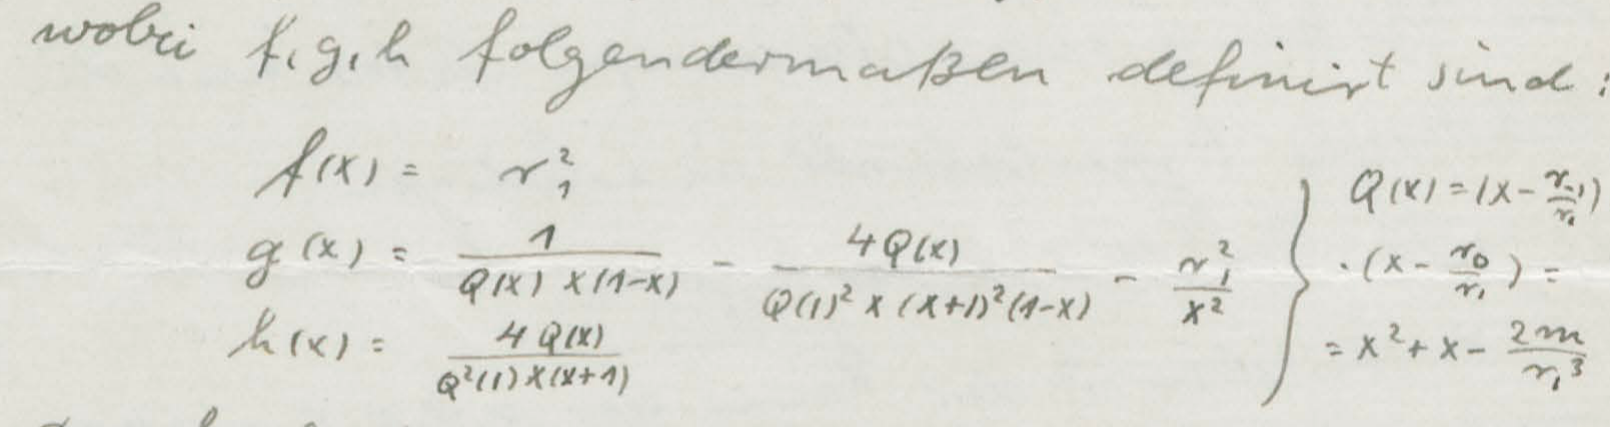 wobei f, g, h folgendermaßen definirt sind:
f(x) = r₁²
g(x) = 1/(Q(x) x(1-x)) - 4Q(x)/(Q(1)² x (x+1)²(1-x)) - r₁²/x²
h(x) = 4Q(x)/(Q²(1) x(x+1))
} Q(x) = (x - r₋₁/r₁)
· (x - r₀/r₁) =
= x² + x - 2m/r₁³